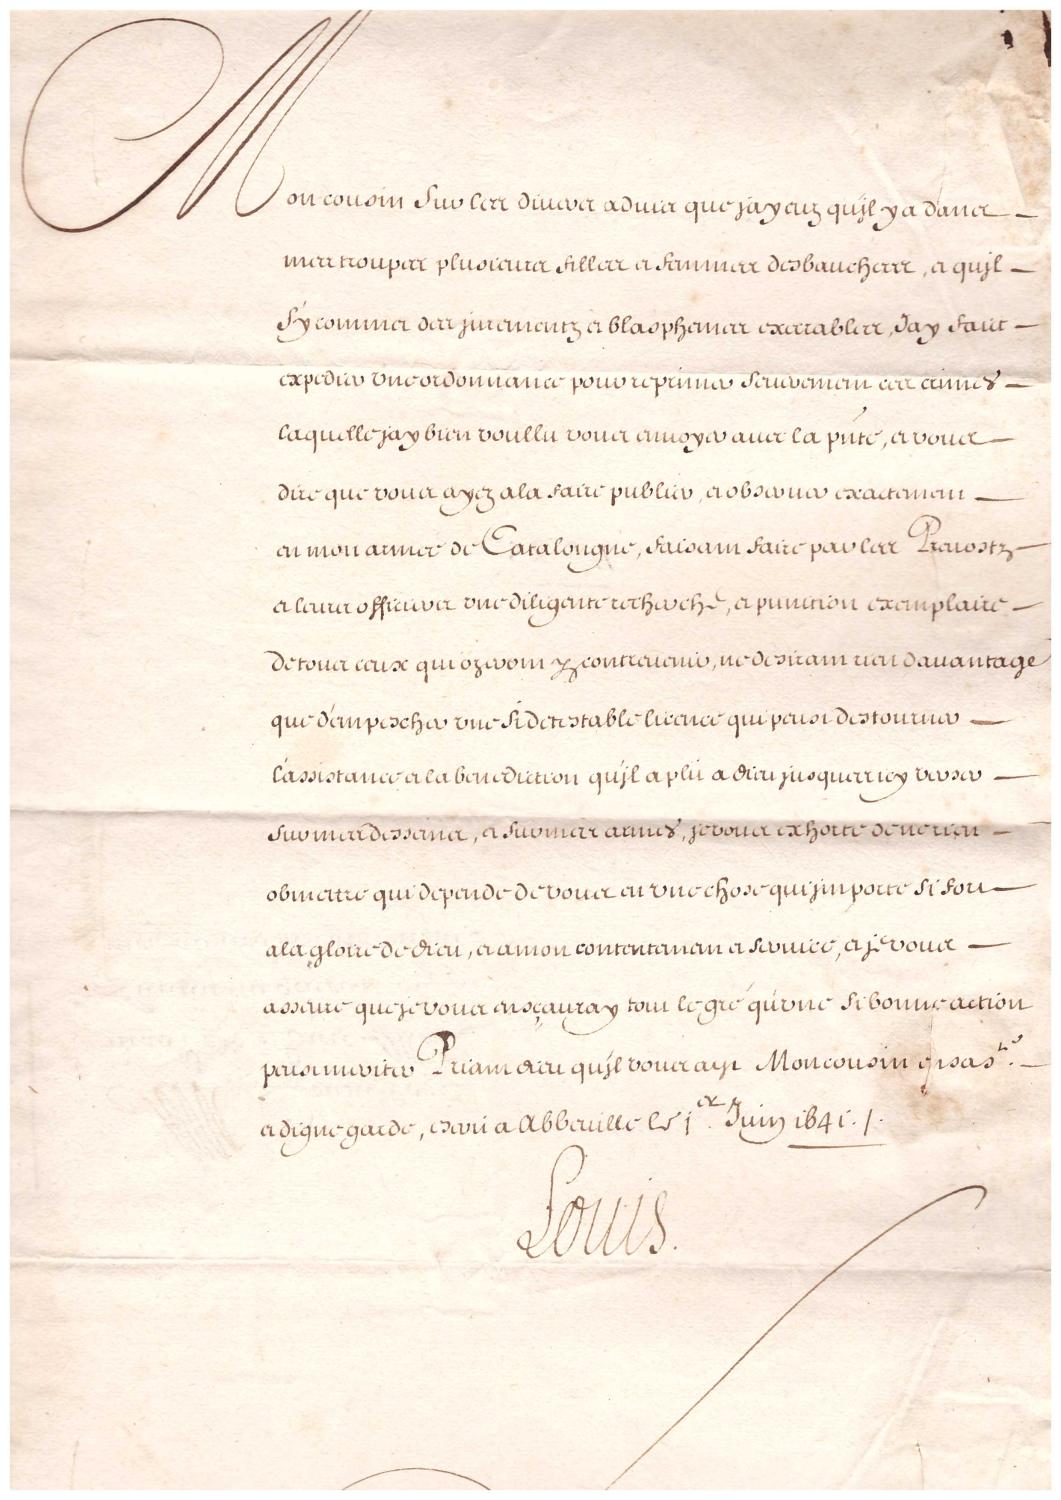 Mon cousin Sur les divers advis que j'ay euz qu'jl y a dans
mes troupes plusieurs filles et femmes desbauchees, et qu'jl
s'y commet des jurementz et blasphemes execrables, J'ay faict
expedier vne ordonnance pour reprimer severement ces crimes
laquelle j'ay bien voullu vous envoyer avec la pnte, et vous
dire que vous ayez a la faire publier, et observer exactement
en mon armee de Catalongne, faisant faire par les Prevostz
et leurs officiers vne diligente recherche, et punition exemplaire
de tous ceux qui ozeront y contrevenir, ne desirant rien davantage
que d'empescher vne si detestable licence qui peust destourner
l'assistance et la benediction qu'jl a plû a dieu jusques icy verser
sur mes desseins, et sur mes armes, je vous exhorte de ne rien
obmettre qui depende de vous en vne chose qui jmporte si fort
a la gloire de dieu, et a mon contentement et service, et je vous
asseure que je vous en sçauray tout le gré qu'vne si bonne action
peust meriter Priant dieu qu'jl vous ayt Mon cousin en sa ste.
et digne garde, escrit a Abbeville le 1er. Juin 1641./.
Louis.